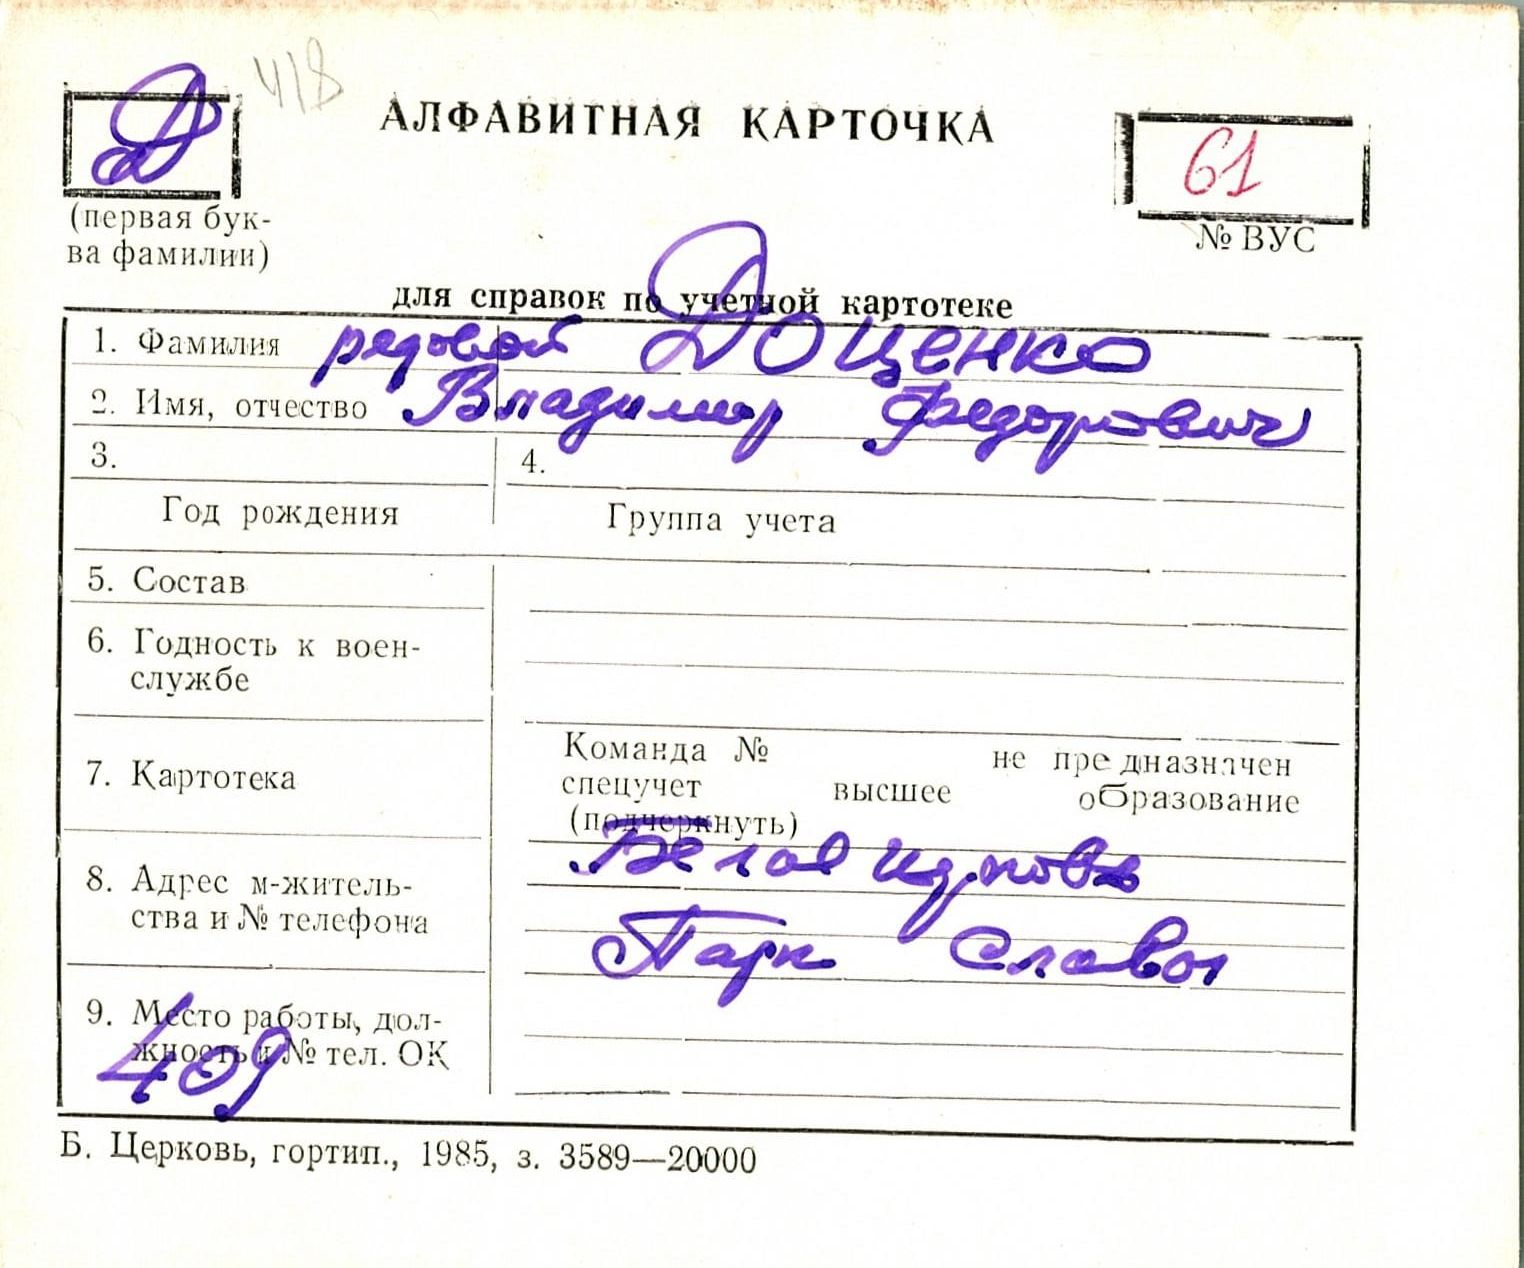 Д 418
АЛФАВИТНАЯ КАРТОЧКА
61
(первая бук-
ва фамилии)
№ ВУС
для справок по учетной картотеке
1. Фамилия рядовой Доценко
2. Имя, отчество Владимир Федорович
3.
4.
Год рождения
Группа учета
5. Состав
6. Годность к воен-
службе
7. Картотека
Команда № не предназначен
спецучет высшее образование
(подчеркнуть)
8. Адрес м-житель-
ства и № телефона
Белая Церковь
Парк Славы
9. Место работы, дол-
жность и № тел. ОК
409
Б. Церковь, гортип., 1985, з. 3589—20000